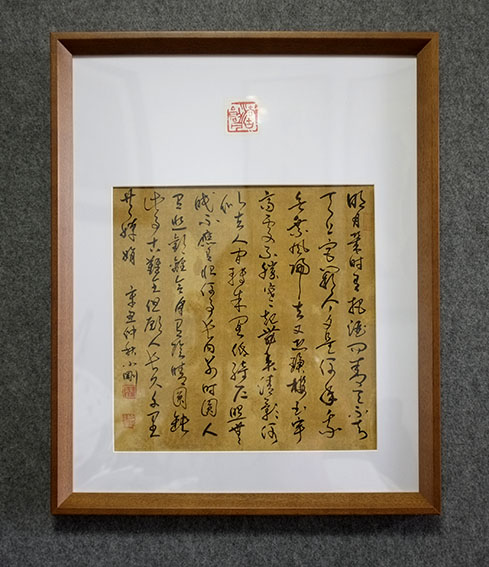 明月幾时有把酒问青天不知
天上宫阙今夕是何年我
欲乘風歸去又恐瓊楼玉宇
高處不勝寒起舞弄清影何
似在人间轉朱阁低绮户照無
眠不應有恨何事长向别时圆人
有悲歡離合月有陰晴圆缺
此事古難全但願人长久千里
共嬋娟 辛丑仲秋小剛